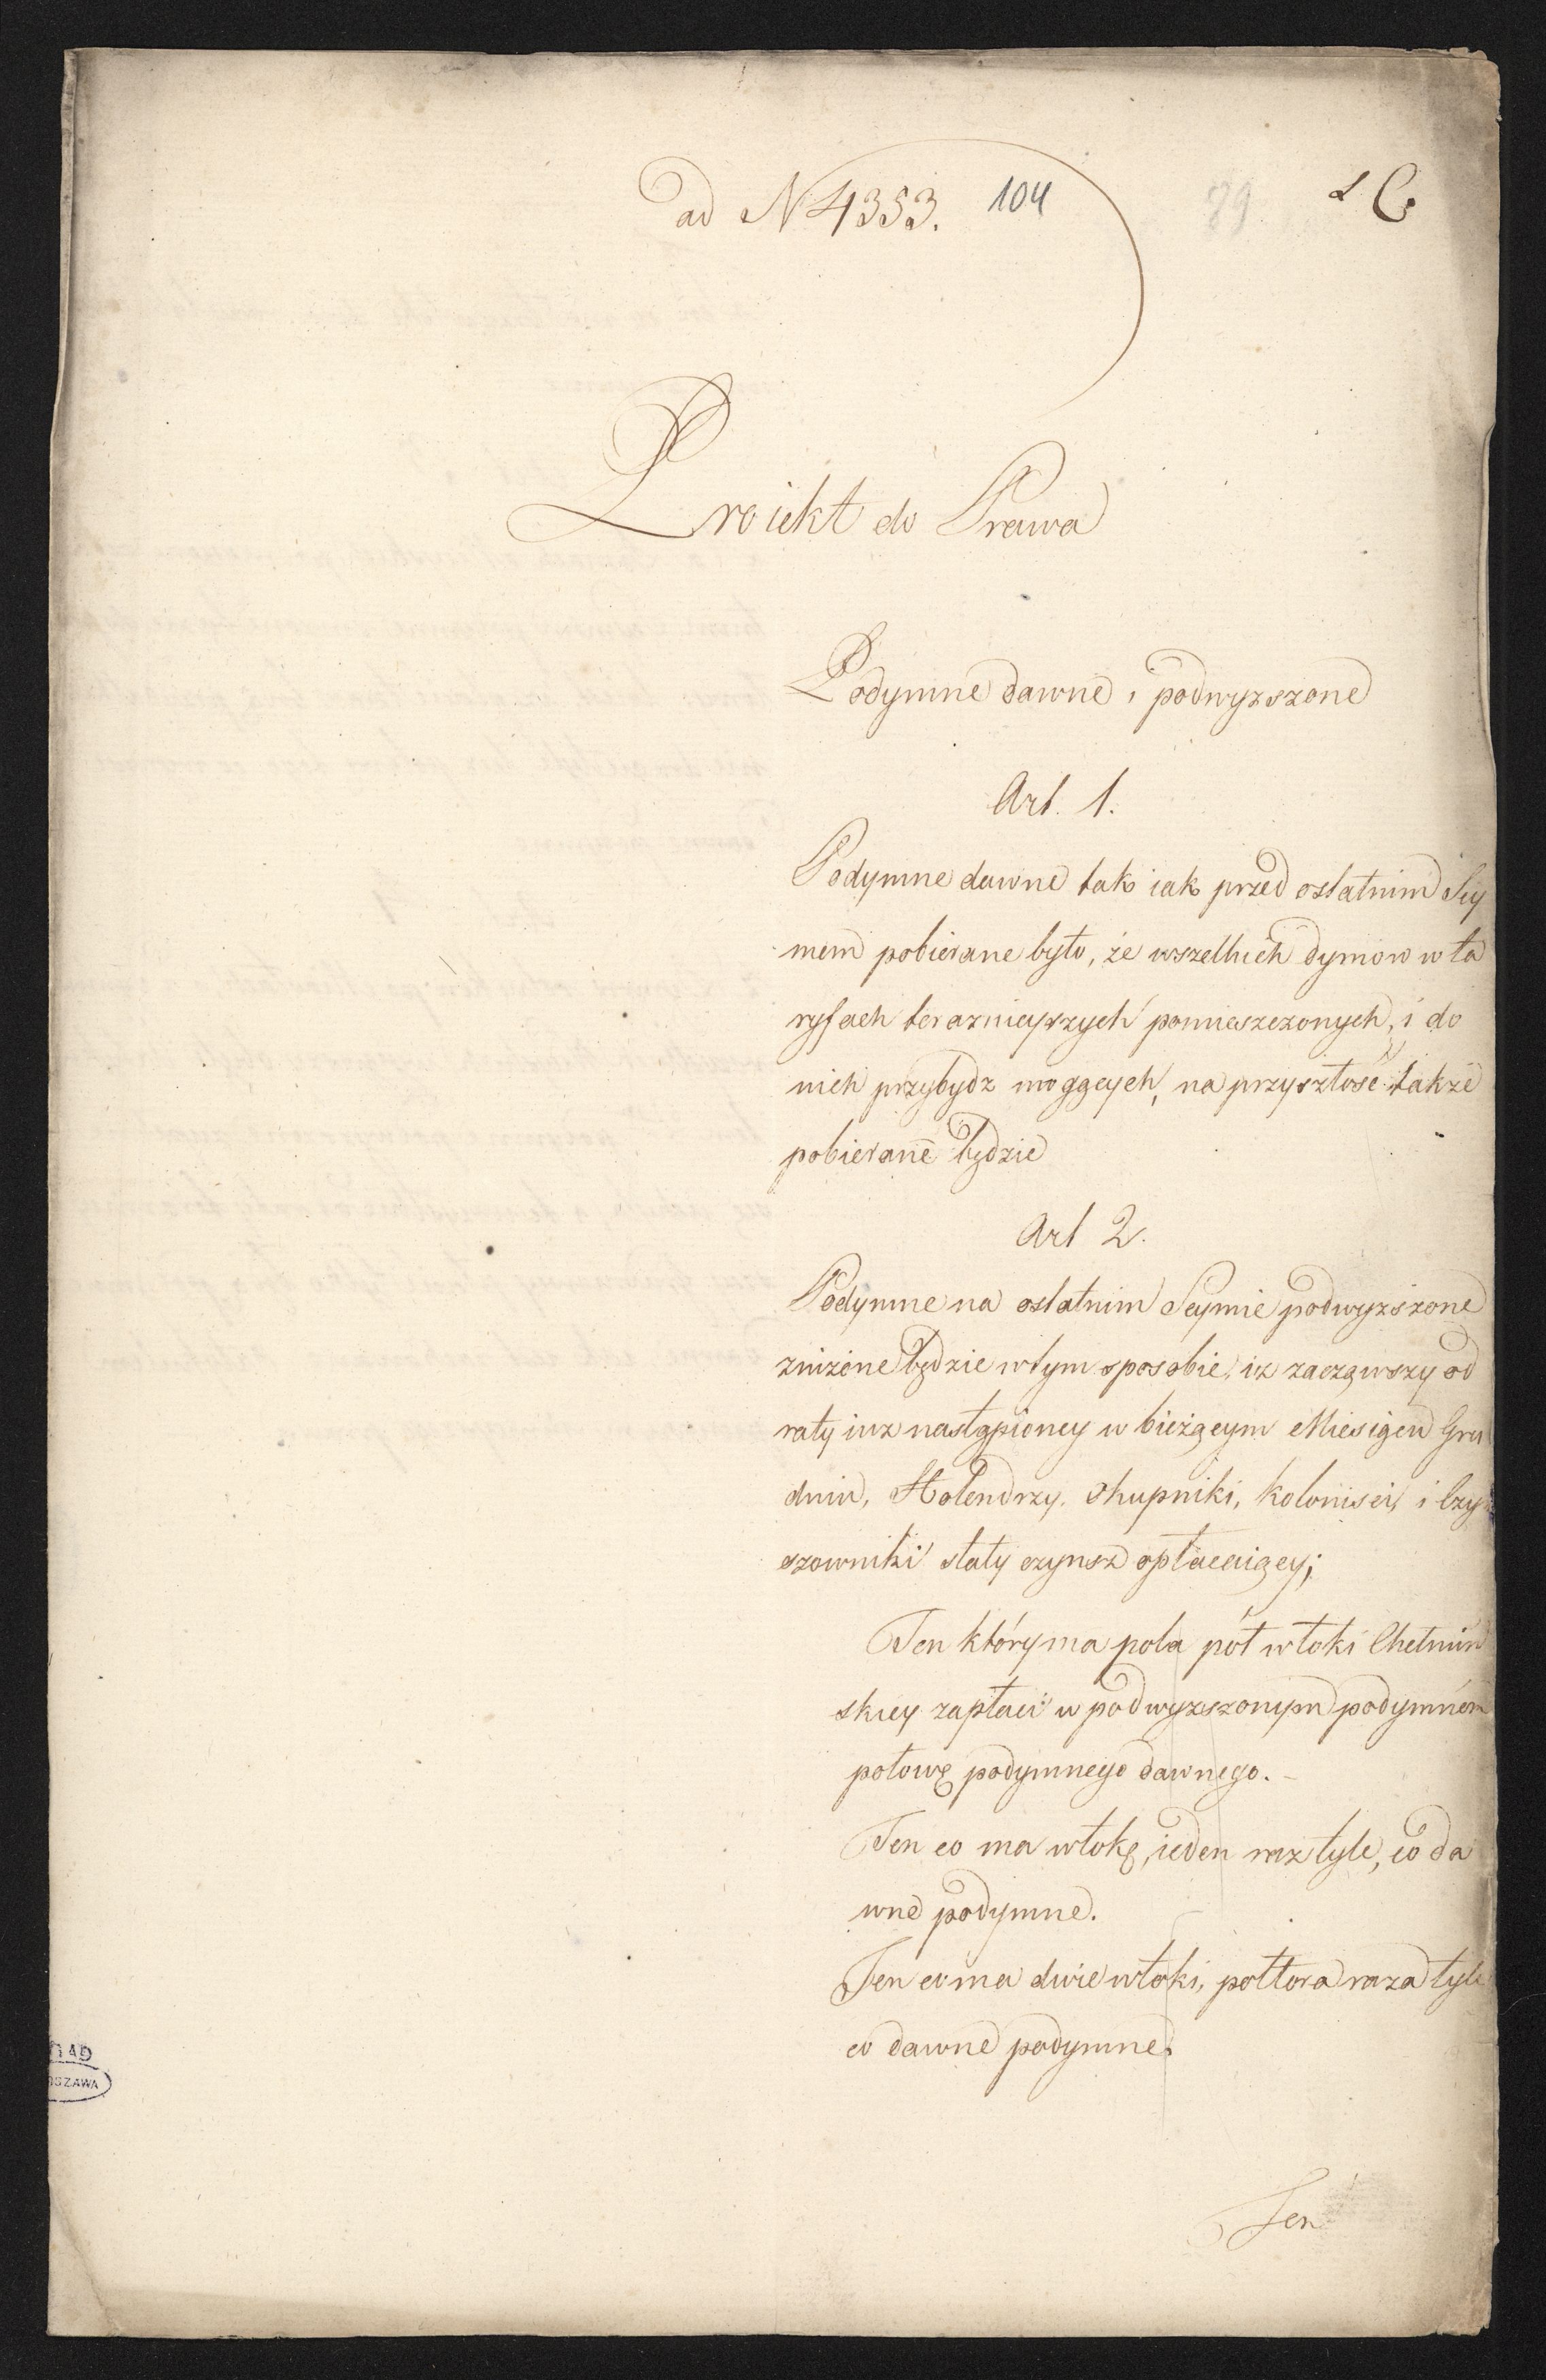 ad N 4353. 104 89 L C.
Proiekt do Prawa
Podymne dawne i podwyzszone
Art. 1.
Podymne dawne tak iak przed ostatnim Sey
mem pobierane było, że wszelkich dymow w ta
ryfach teraznieyszych pomieszczonych, i do
nich przybydz mogących, na przyszłość także
pobierane będzie
Art 2.
Podymne na ostatnim Seymie podwyższone
zniżone będzie w tym sposobie, iż zacząwszy od
raty iuz nastąpioney w bieżącym Miesiącu Gru
dniu, Holendrzy, Okupniki, koloniści, i Czyn
szowniki stały czynsz opłacaiący;
Ten który ma pola pół włoki Chełmiń
skiey zapłaci w podwyzszonym podymném
połowę podymnego dawnego. -
Ten co ma włokę, ieden raz tyle, co da
wne podymne.
Ten co ma dwie włoki, połtora raza tyle
co dawne podymne.
Ten
GAD
RSZAWA